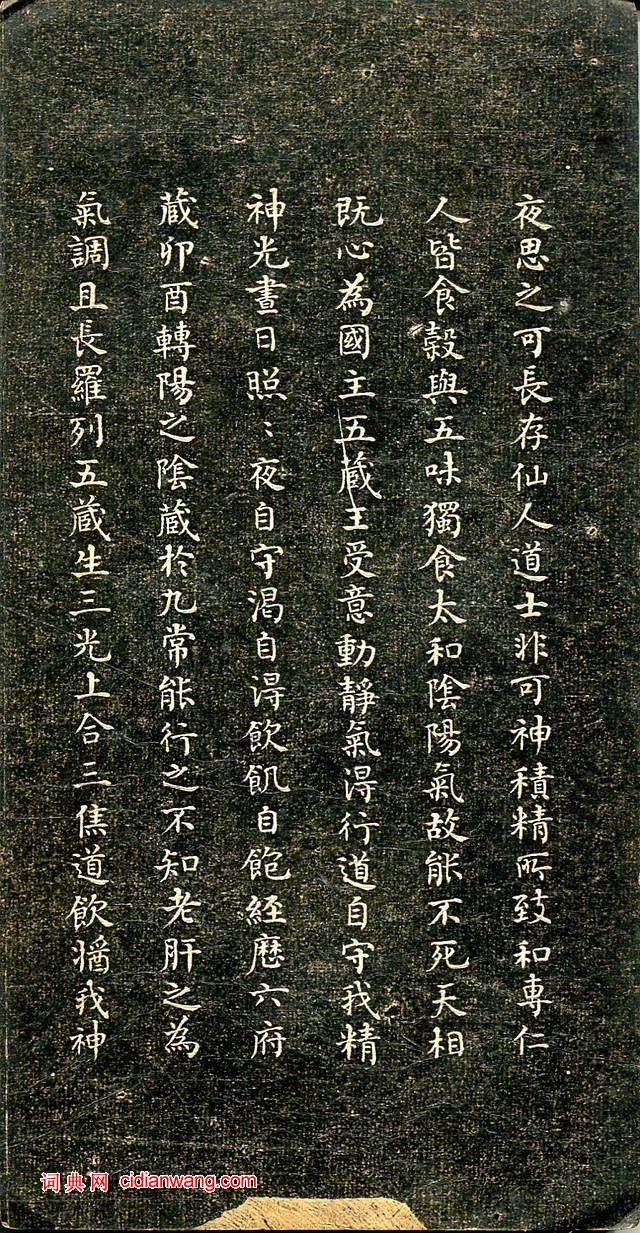 夜思之可長存仙人道士非可神積精所致和專仁
人皆食穀與五味獨食太和陰陽氣故能不死天相
既心為國主五蔵王受意動靜氣淂行道自守我精
神光晝日照〻夜自守渴自淂飲飢自飽經歷六府
蔵卯酉轉陽之陰蔵於九常能行之不知老肝之為
氣調且長羅列五蔵生三光上合三焦道飲醬我神
词典网 cidianwang.com